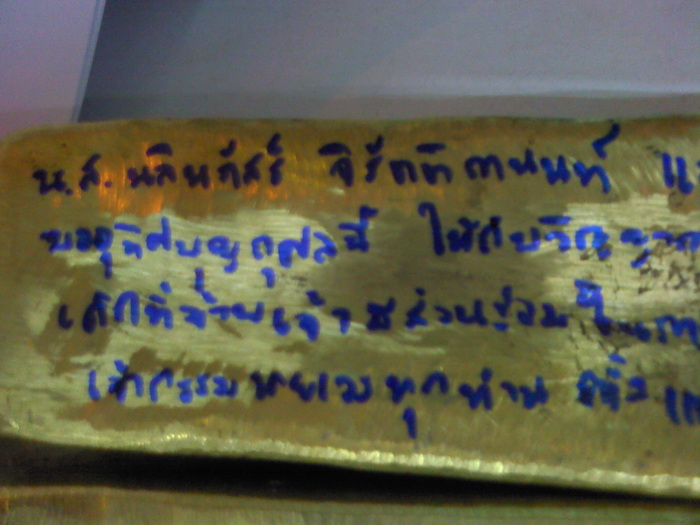 น.ส. นลินภัสร์ จิรัฐติตานนท์
ขออุทิศบุญกุศลนี้ ให้กับวิญญาณ
เด็กที่ข้าพเจ้า มีส่วนร่วมใน
เจ้ากรรมนายเวรทุกท่าน